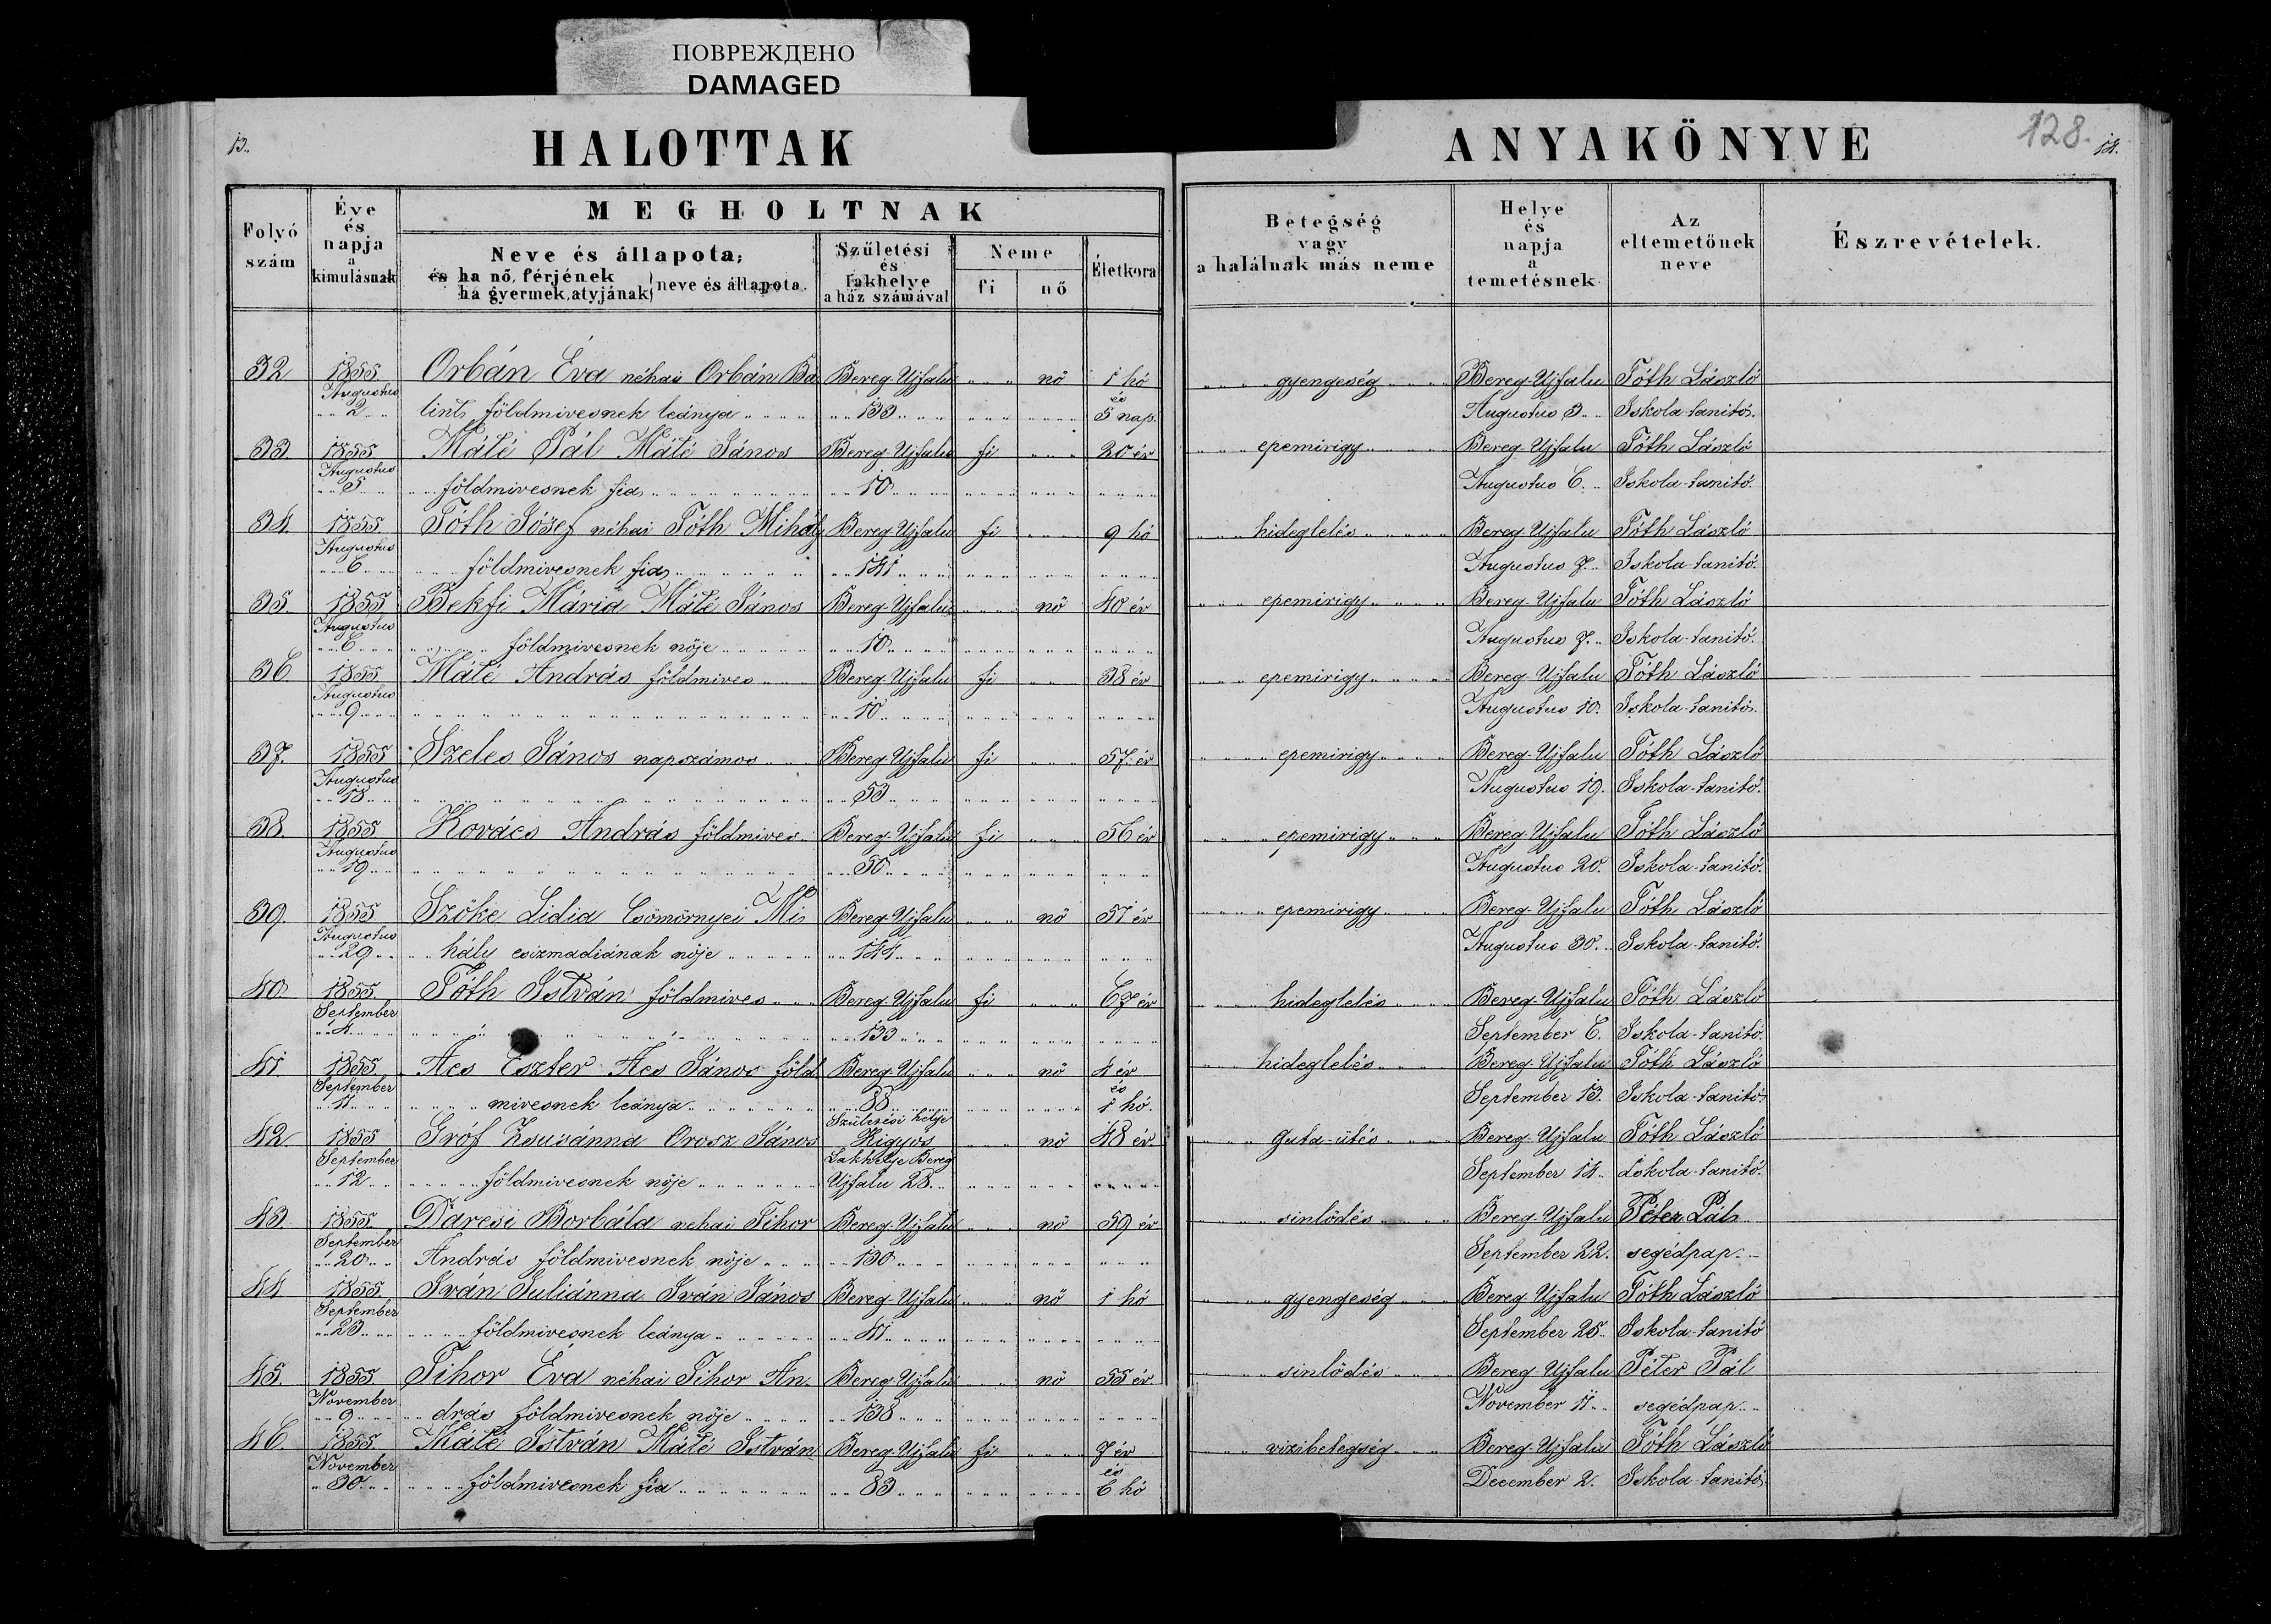 ПОВРЕЖДЕНО
DAMAGED
13.
HALOTTAK
ANYAKÖNYVE
128.
14.
Folyó szám
Éve és napja a kimulásnak
MEGHOLTNAK
Neve és állapota;
és ha nő, férjének
ha gyermek, atyjának
neve és állapota.
Születési és lakhelye a ház számával
Neme
fi
nő
Életkora
Betegség vagy a halálnak más neme
Helye és napja a temetésnek
Az eltemetőnek neve
Észrevételek.
32 1855 Orbán Éva néhai Orbán Bá Bereg-Ujfalu nő 1 hó gyengeség Bereg-Ujfalu Tóth László
Augustus 2 lint földmivesnek leánya 133 és 5 nap. Augustus 3. Iskola-tanitó.
33 1855 Máté Pál Máté János Bereg-Ujfalu fi 20 év epemirigy Bereg-Ujfalu Tóth László
Augustus 5 földmivesnek fia 10 Augustus 6. Iskola-tanitó.
34 1855 Tóth Jósef néhai Tóth Mihály Bereg-Ujfalu fi 9 hó hideglelés Bereg-Ujfalu Tóth László
Augustus 6 földmivesnek fia 141 Augustus 7. Iskola-tanitó.
35. 1855 Bekfi Mária Máté János Bereg-Ujfalu nő 40 év epemirigy Bereg-Ujfalu Tóth László
Augustus 6 földmivesnek nője 10 Augustus 7. Iskola-tanitó.
36 1855 Máté András földmives Bereg-Ujfalu fi 38 év epemirigy Bereg-Ujfalu Tóth László
Augustus 9 10 Augustus 10. Iskola-tanitó.
37. 1855 Szeles János napszámos Bereg-Ujfalu fi 57 év epemirigy Bereg-Ujfalu Tóth László
Augustus 18 53 Augustus 19. Iskola-tanitó.
38. 1855 Kovács András földmives Bereg-Ujfalu fi 56 év epemirigy Bereg-Ujfalu Tóth László
Augustus 19 50 Augustus 20. Iskola-tanitó.
39. 1855 Szőke Lidia Csömörnyei Mi Bereg-Ujfalu nő 51 év epemirigy Bereg-Ujfalu Tóth László
Augustus 29 hály csizmadiának nője 144 Augustus 30. Iskola-tanitó.
40. 1855 Tóth István földmives Bereg-Ujfalu fi 67 év hideglelés Bereg-Ujfalu Tóth László
September 4 133 September 6. Iskola-tanitó.
41 1855 Ács Eszter Ács János föld Bereg-Ujfalu nő 4 év hideglelés Bereg-Ujfalu Tóth László
September 11 mivesnek leánya 88 és 1 hó. September 13. Iskola-tanitó
42 1855 Gróf Zsuzsánna Orosz János Születési helye Kigyos nő 48 év guta-ütés Bereg-Ujfalu Tóth László
September 12 földmivesnek nője Lakhelye Bereg Ujfalu 28. September 14. Iskola-tanitó.
43 1855 Darcsi Borbála nehai Tihor Bereg-Ujfalu nő 59 év sinlődés Bereg-Ujfalu Péter Pál
September 20 András földmivesnek nője 130 September 22. segédpap.
44 1855 Iván Juliánna Iván János Bereg-Ujfalu nő 1 hó gyengeség Bereg Ujfalu Tóth László
September 23 földmivesnek leánya 41 September 25. Iskola-tanitó
45. 1855 Tihor Éva néhai Tihor An- Bereg Ujfalu nő 55 év sinlődés Bereg-Ujfalu Péter Pál
November 9 drás földmivesnek nője 138 November 11. segédpap
46. 1855 Máté István Máté István Bereg-Ujfalu fi 7 év vizibetegség Bereg-Ujfalu Tóth László
November 30 földmivesnek fia 83 és 6 hó December 2. Iskola-tanitó